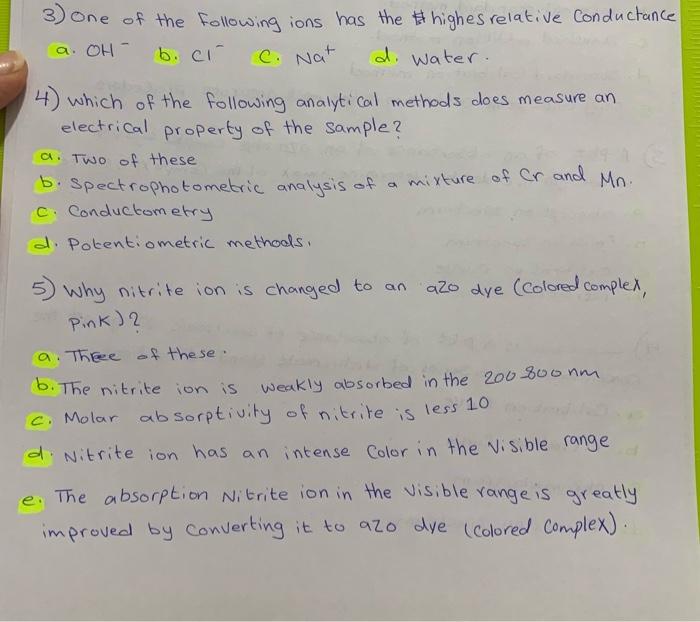 3) One of the following ions has the highes relative Conductance
a. OH⁻ b. Cl⁻ c. Na⁺ d. water.
4) which of the following analytical methods does measure an
electrical property of the sample?
a. Two of these
b. Spectrophotometric analysis of a mixture of Cr and Mn.
c. Conductometry
d. Potentiometric methods.
5) Why nitrite ion is changed to an azo dye (Colored complex,
Pink)?
a. Three of these.
b. The nitrite ion is weakly absorbed in the 200-800nm
c. Molar absorptivity of nitrite is less 10
d. Nitrite ion has an intense Color in the visible range
e. The absorption Nitrite ion in the visible range is greatly
improved by Converting it to azo dye (Colored Complex).